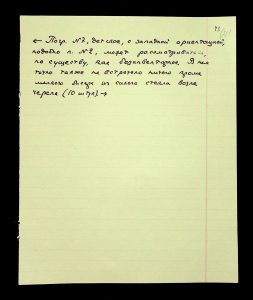 ← Погр. №7, детское, с западной ориентацией,
подобно п. №2, может рассматриваться,
по существу, как безинвентарное. В нем
точно также не встречено ничего кроме
мелкого бисера из синего стекла возле
черепа (10 штук) →